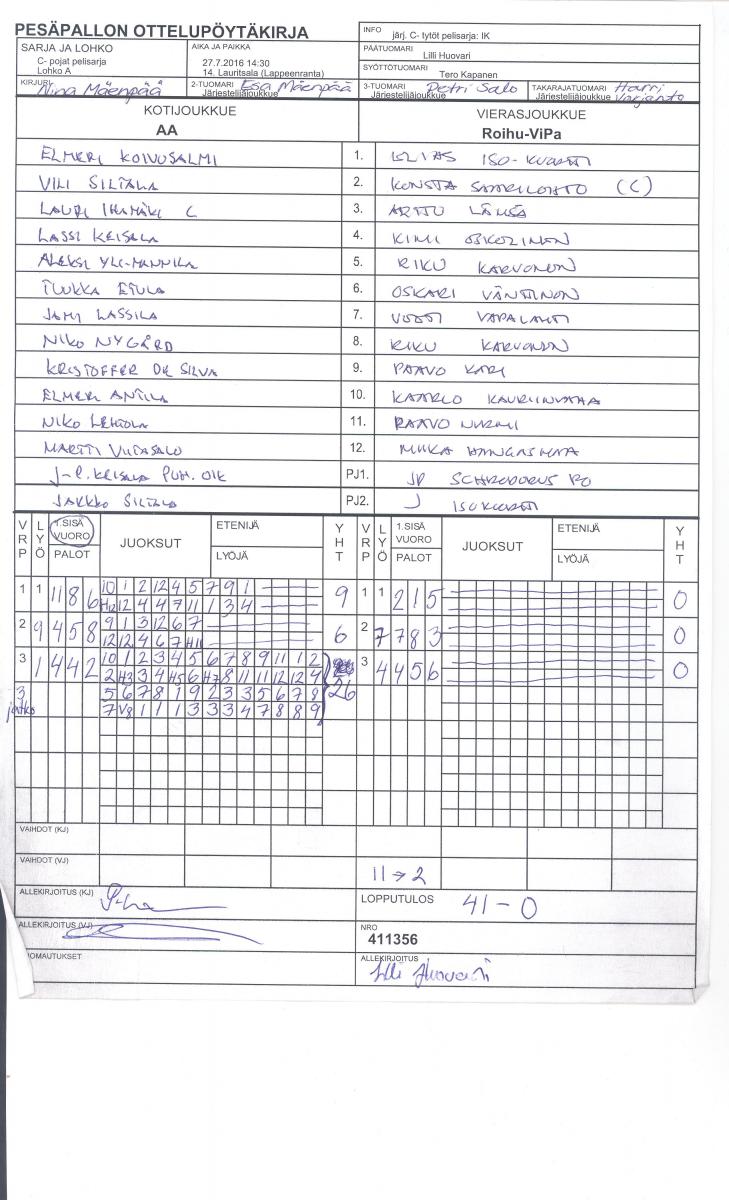 PESÄPALLON OTTELUPÖYTÄKIRJA
INFO järj. C- tytöt pelisarja: IK
SARJA JA LOHKO
C- pojat pelisarja
Lohko A
AIKA JA PAIKKA
27.7.2016 14:30
14. Lauritsala (Lappeenranta)
PÄÄTUOMARI
Lilli Huovari
SYÖTTÖTUOMARI
Tero Kapanen
KIRJURI Nina Mäenpää
2-TUOMARI Esa Mäenpää
Järjestelijäjoukkue
3-TUOMARI Petri Salo
Järjestelijäjoukkue
TAKARAJATUOMARI Harri
Järjestelijäjoukkue Varjanto
KOTIJOUKKUE
AA
VIERASJOUKKUE
Roihu-ViPa
ELMERI KOIVUSALMI 1. ELIAS ISO-KUORTTI
VILI SILTALA 2. KONSTA SAARILUHTO (C)
LAURI IHAMÄKI C 3. ARTTU LÄMSÄ
LASSI KEISALA 4. KIMI
ALEKSI YLI-MANNILA 5. RIKU KARVONEN
TUUKKA ETULA 6. OSKARI VÄNTTINEN
JAMI LASSILA 7. VAPALAHTI
NIKO NYGÅRD 8. RIKU KARVONEN
KRISTOFFER DE SILVA 9. PAAVO KARI
ELMERI ANTILA 10. KAARLO KAURIINVAHA
NIKO LEHTOLA 11. PAAVO NURMI
MARTTI VIITASALO 12. MIIKA
J-P. KEISALA PUH. OIK PJ1. JP
JAKKO SILTALA PJ2. J ISOKUORTTI
VRP LYÖ 1.SISÄ VUORO PALOT JUOKSUT ETENIJÄ LYÖJÄ YHT VRP LYÖ 1.SISÄ VUORO PALOT JUOKSUT ETENIJÄ LYÖJÄ YHT
1 1 11 8 6 10 1 2 12 4 5 7 9 1 9 1 1 2 1 5 0
H12 12 4 4 7 11 1 3 4
2 9 4 5 8 9 1 3 12 6 7 6 2 7 7 8 3 0
12 12 4 6 7 H11
3 1 4 4 2 10 1 2 3 4 5 6 7 8 9 11 1 2 26 3 4 4 5 6 0
2 H3 3 4 H5 6 H7 8 11 11 12 12 4
3 jatko 5 6 7 8 1 9 2 3 3 5 6 7 8
7 V8 1 1 1 3 3 3 4 7 8 8 9
VAIHDOT (KJ)
VAIHDOT (VJ) 11 → 2
ALLEKIRJOITUS (KJ)
LOPPUTULOS 41 - 0
ALLEKIRJOITUS (VJ)
NRO
411356
OMAUTUKSET
ALLEKIRJOITUS
Lilli Huovari